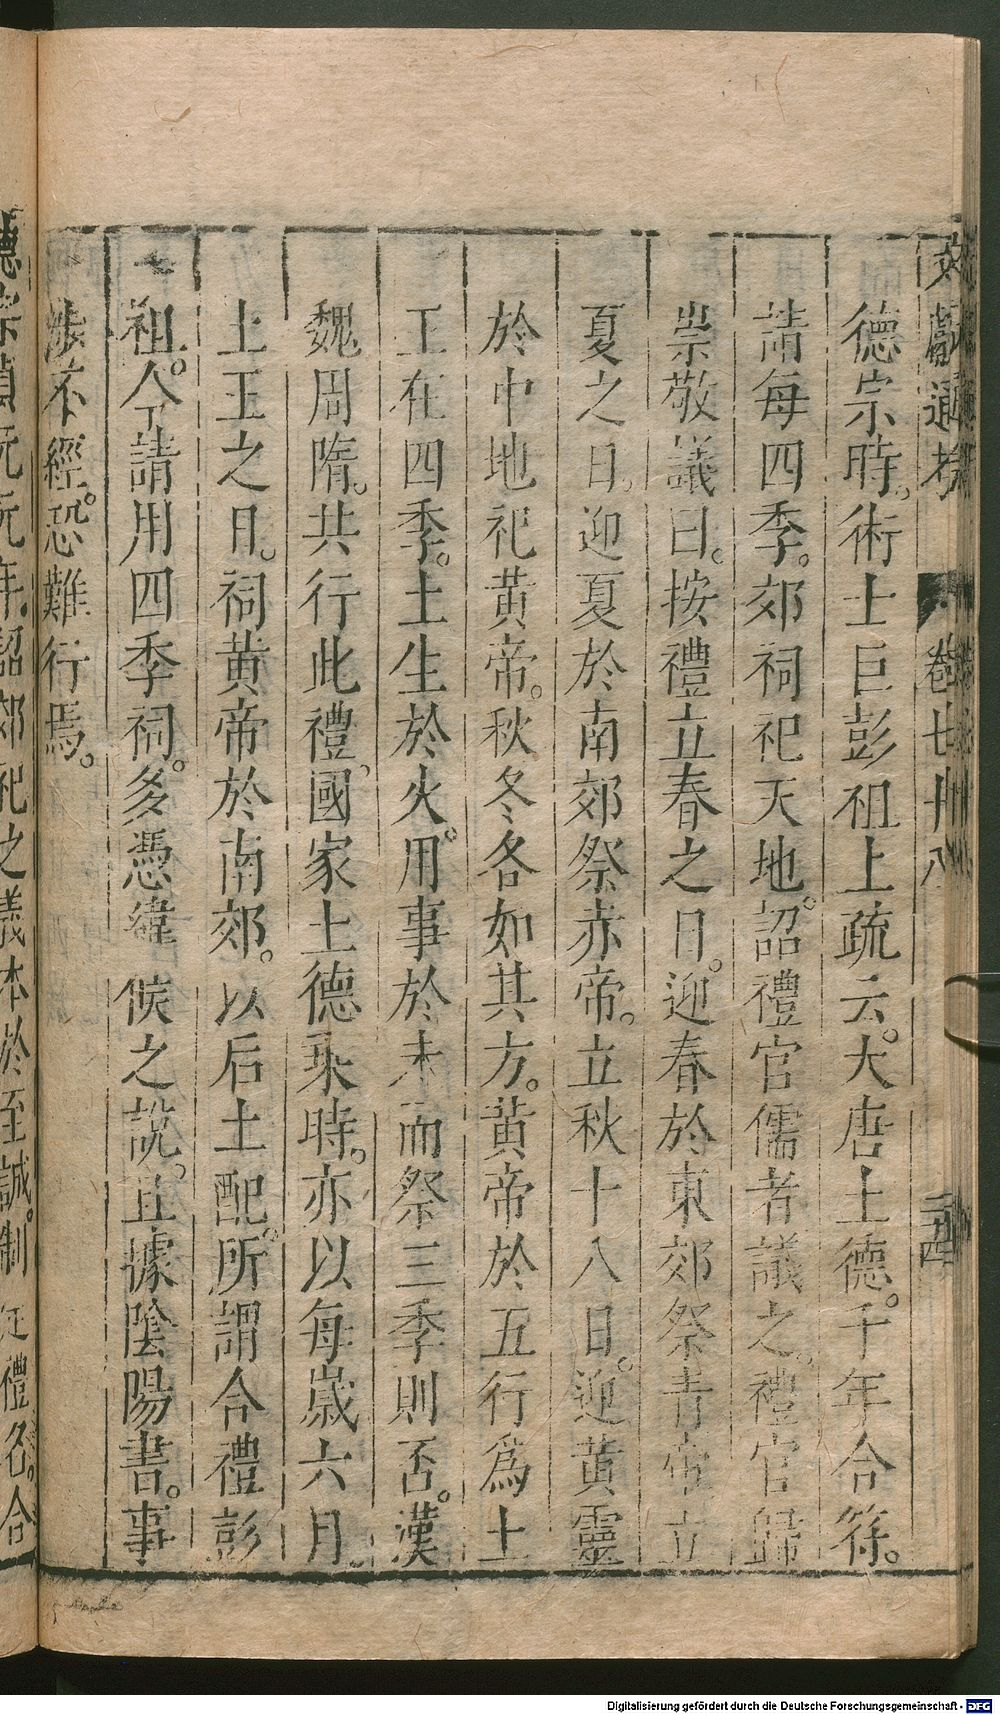 文獻通考 卷七十八 二十四
德宗時。術士巨彭祖上疏云。大唐土德。千年合符。
請每四季。郊祠祀天地。詔禮官儒者議之。禮官歸
崇敬議曰。按禮立春之日。迎春於東郊祭青帝立
夏之日。迎夏於南郊祭赤帝。立秋十八日。迎黃靈
於中地祀黃帝。秋冬各如其方。黃帝於五行為土
王在四季。土生於火。用事於未而祭三季則否。漢
魏周隋。共行此禮。國家土德乘時。亦以每歲六月。
土王之日。祠黃帝於南郊。以后土配。所謂合禮彭
祖。今請用四季祠。多憑緯候之說。且據陰陽書。事
涉不經。恐難行焉。
德宗貞元元年。詔郊祀之義本於至誠。制定禮名。合
Digitalisierung gefördert durch die Deutsche Forschungsgemeinschaft - DFG